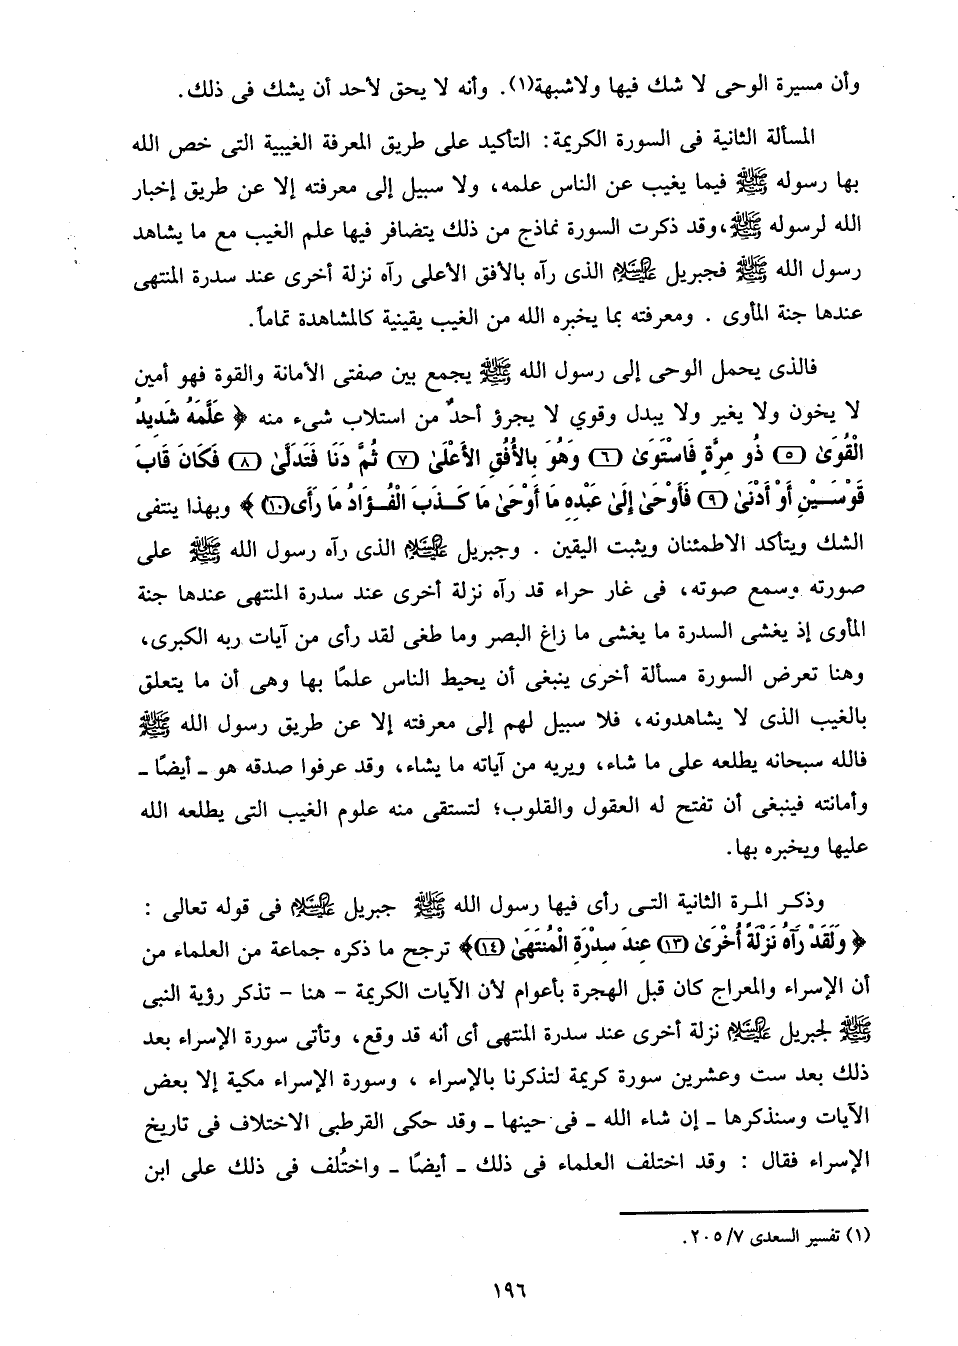 وأن مسيرة الوحى لا شك فيها ولاشبهة(١). وأنه لا يحق لأحد أن يشك فى ذلك.
المسألة الثانية فى السورة الكريمة: التأكيد على طريق المعرفة الغيبية التى خص الله
بها رسوله ﷺ فيما يغيب عن الناس علمه، ولا سبيل إلى معرفته إلا عن طريق إخبار
الله لرسوله ﷺ،وقد ذكرت السورة نماذج من ذلك يتضافر فيها علم الغيب مع ما يشاهد
رسول الله ﷺ فجبريل عليه السلام الذى رآه بالأفق الأعلى رآه نزلة أخرى عند سدرة المنتهى
عندها جنة المأوى . ومعرفته بما يخبره الله من الغيب يقينية كالمشاهدة تماماً.
فالذى يحمل الوحى إلى رسول الله ﷺ يجمع بين صفتى الأمانة والقوة فهو أمين
لا يخون ولا يغير ولا يبدل وقوي لا يجرؤ أحدٌ من استلاب شىء منه ﴿ عَلَّمَهُ شَدِيدُ
الْقُوَىٰ (٥) ذُو مِرَّةٍ فَاسْتَوَىٰ (٦) وَهُوَ بِالأُفُقِ الأَعْلَىٰ (٧) ثُمَّ دَنَا فَتَدَلَّىٰ (٨) فَكَانَ قَابَ
قَوْسَيْنِ أَوْ أَدْنَىٰ (٩) فَأَوْحَىٰ إِلَىٰ عَبْدِهِ مَا أَوْحَىٰ مَا كَذَبَ الْفُؤَادُ مَا رَأَى(١٠) ﴾ وبهذا ينتفى
الشك ويتأكد الاطمئنان ويثبت اليقين . وجبريل عليه السلام الذى رآه رسول الله ﷺ على
صورته وسمع صوته، فى غار حراء قد رآه نزلة أخرى عند سدرة المنتهى عندها جنة
المأوى إذ يغشى السدرة ما يغشى ما زاغ البصر وما طغى لقد رأى من آيات ربه الكبرى،
وهنا تعرض السورة مسألة أخرى ينبغى أن يحيط الناس علمًا بها وهى أن ما يتعلق
بالغيب الذى لا يشاهدونه، فلا سبيل لهم إلى معرفته إلا عن طريق رسول الله ﷺ
فالله سبحانه يطلعه على ما شاء، ويريه من آياته ما يشاء، وقد عرفوا صدقه هو ـ أيضًا ـ
وأمانته فينبغى أن تفتح له العقول والقلوب؛ لتستقى منه علوم الغيب التى يطلعه الله
عليها ويخبره بها.
وذكر المرة الثانية التى رأى فيها رسول الله ﷺ جبريل عليه السلام فى قوله تعالى :
﴿ وَلَقَدْ رَآهُ نَزْلَةً أُخْرَىٰ (١٣) عِندَ سِدْرَةِ الْمُنتَهَىٰ (١٤)﴾ ترجح ما ذكره جماعة من العلماء من
أن الإسراء والمعراج كان قبل الهجرة بأعوام لأن الآيات الكريمة - هنا - تذكر رؤية النبى
ﷺ لجبريل عليه السلام نزلة أخرى عند سدرة المنتهى أى أنه قد وقع، وتأتى سورة الإسراء بعد
ذلك بعد ست وعشرين سورة كريمة لتذكرنا بالإسراء ، وسورة الإسراء مكية إلا بعض
الآيات وسنذكرها ـ إن شاء الله ـ فى حينها ـ وقد حكى القرطبى الاختلاف فى تاريخ
الإسراء فقال : وقد اختلف العلماء فى ذلك ـ أيضًا ـ واختُلف فى ذلك على ابن
(١) تفسير السعدى ٧/ ٢٠٥.
١٩٦